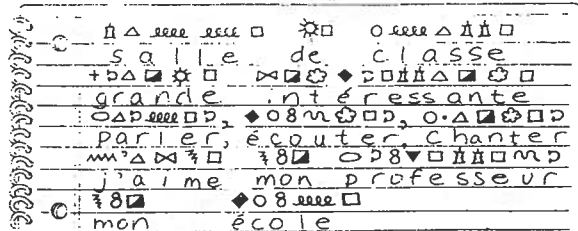 salle de classe
grande intéressante
parler, écouter, chanter
j'aime mon professeur
mon école